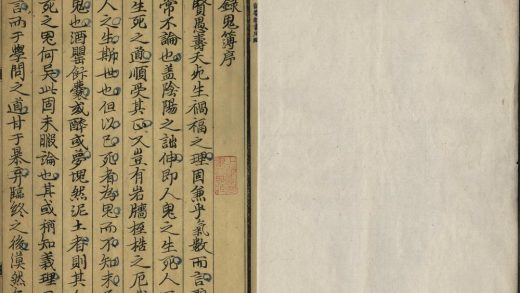 錄鬼簿序
賢愚壽夭死生禍福之理固兼乎氣數而言聖
常不論也盖陰陽之詘伸即人鬼之生死人
生死之道順受其正又豈有岩牆桎梏之厄
人之生斯世也但以已死者為鬼而不知未
鬼也酒罌飯囊或醉或夢塊然泥土者則其
死之鬼何異此固未暇論也其或稍知義理
言而于學問之道甘于暴弃臨終之後漠然